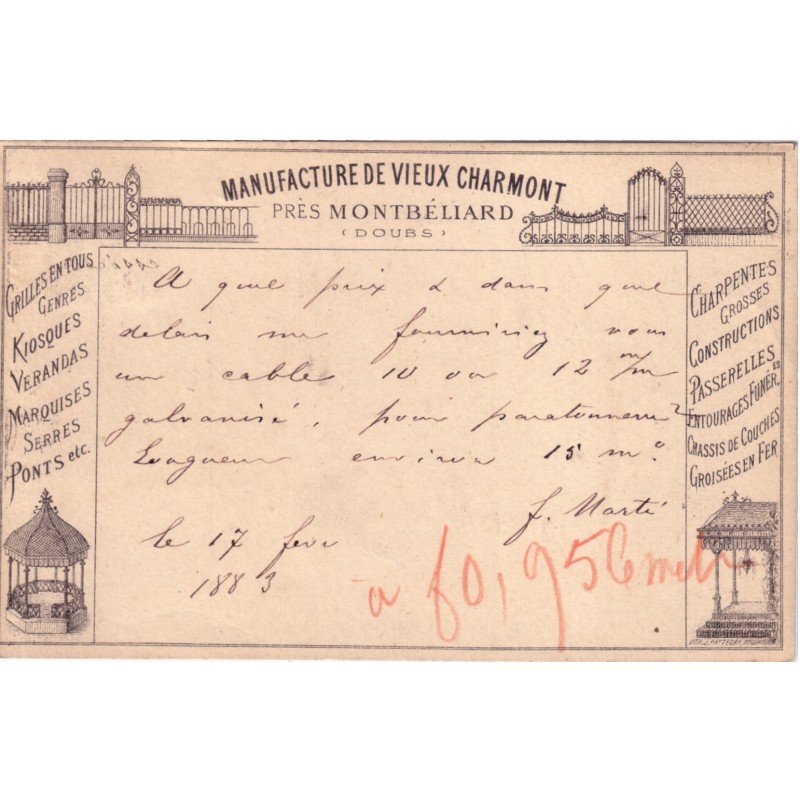 MANUFACTURE DE VIEUX CHARMONT
PRÈS MONTBÉLIARD
(DOUBS)
GRILLES EN TOUS
GENRES
KIOSQUES
VERANDAS
MARQUISES
SERRES
PONTS etc.
A quel prix & dans quel
delais me fourniriez vous
un cable 10 ou 12 m/m
galvanisé, pour paratonnerre?
Longueur environ 15 mo.
f. Marti
le 17 fevr
1883
à f 0,95 le metre
CHARPENTES
GROSSES
CONSTRUCTIONS
PASSERELLES
ENTOURAGES FUNÉRres
CHASSIS DE COUCHES
CROISÉES EN FER